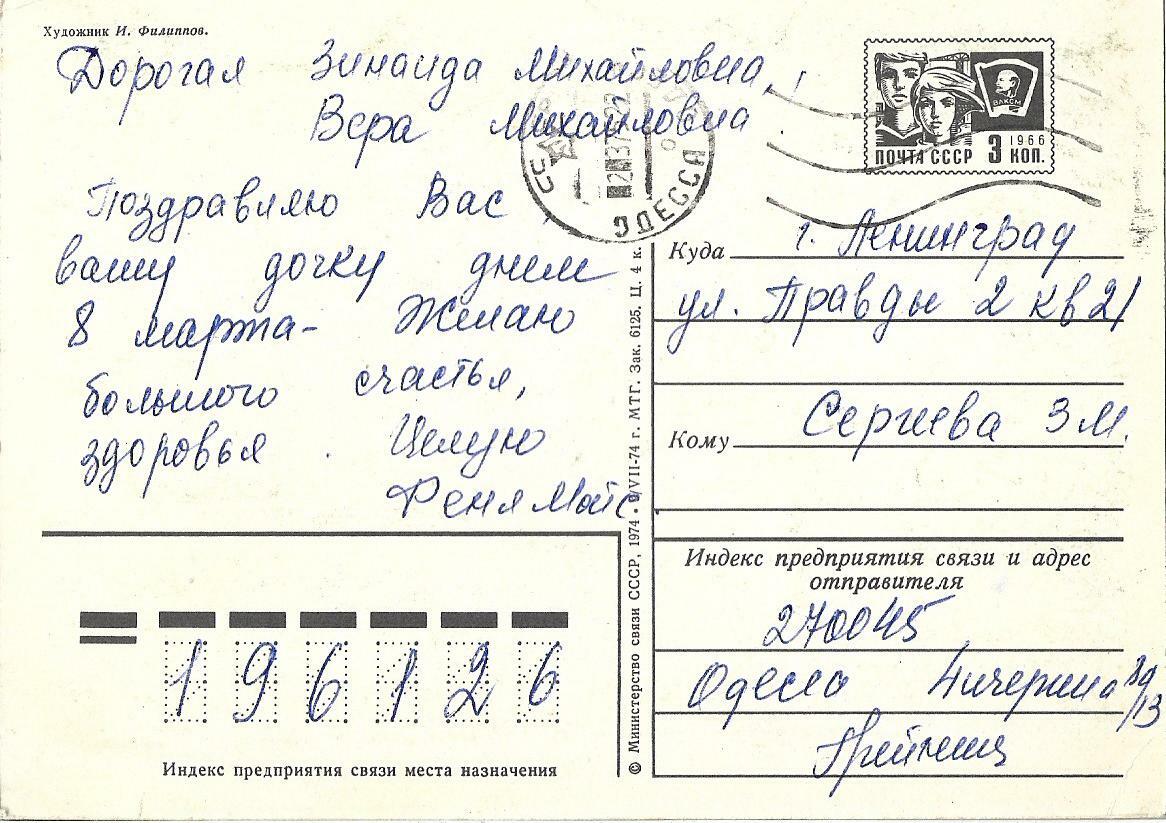 Художник И. Филиппов.
Дорогая Зинаида Михайловна,
Вера Михайловна
Поздравляю Вас,
вашу дочку днем
8 марта- Желаю
большого счастья,
здоровья. Целую
Феня
ОДЕССА
ВЛКСМ
1966
ПОЧТА СССР 3 КОП.
Куда г. Ленинград
ул. Правды 2 кв 21
Кому Сергиева З М.
Индекс предприятия связи и адрес
отправителя
270045
Одесса Чичерина
/13
© Министерство связи СССР, 1974 • /VII-74 г. МТГ. Зак. 6125. Ц. 4 к.
196126
Индекс предприятия связи места назначения